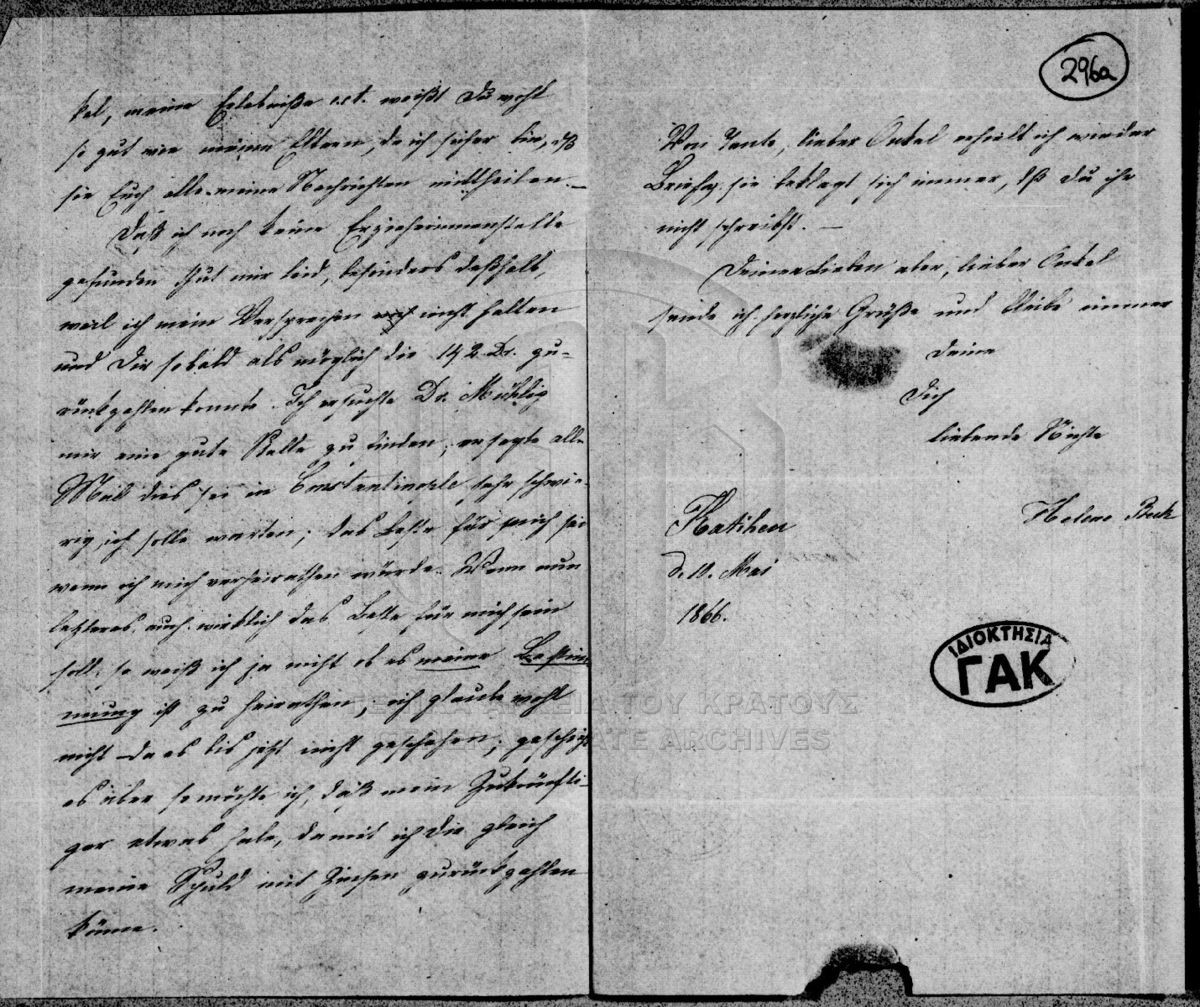 kel, meine Erlebniße ect. weißt Du wohl
so gut wie meine Eltern, da ich sicher bin, dß
sie Euch alle meine Nachrichten mittheilen. —
Daß ich noch keine Erzieherinnenstelle
gefunden thut mir leid, besonders deßhalb,
weil ich mein Versprechen nicht halten
und Dir sobald als möglich die 142 Dr. zu-
rückzahlen konnte. Ich ersuchte Dr. Mühlig
mir eine gute Stelle zu finden; er sagte alle
Mal dies sei in Constantinopel sehr schwie-
rig, ich solle warten; das Beste für mich sei
wenn ich mich verheirathen würde. Wenn nun
letzteres auch wirklich das Beste für mich sein
soll, so weiß ich ja nicht ob es meine Bestim-
mung ist zu heirathen, ich glaube wohl
nicht da es bis jetzt nicht geschehen; geschieht
es aber so möchte ich, daß mein Zukünfti-
ger etwas habe, damit ich Dir gleich
meine Schuld mit Zinsen zurückzahlen
könne.
296a
Von Tante, lieber Onkel erhielt ich wieder
Briefe, sie beklagt sich immer, dß Du ihr
nicht schreibst. —
Deinen Lieben aber, lieber Onkel
sende ich herzliche Grüße und bleibe immer
Deine
Dich
liebende Nichte
Helene Beck
d. 10. Mai
1866.
ΙΔΙΟΚΤΗΣΙΑ
ΓΑΚ
ΓΕΝΙΚΑ ΑΡΧΕΙΑ ΤΟΥ ΚΡΑΤΟΥΣ
GENERAL STATE ARCHIVES